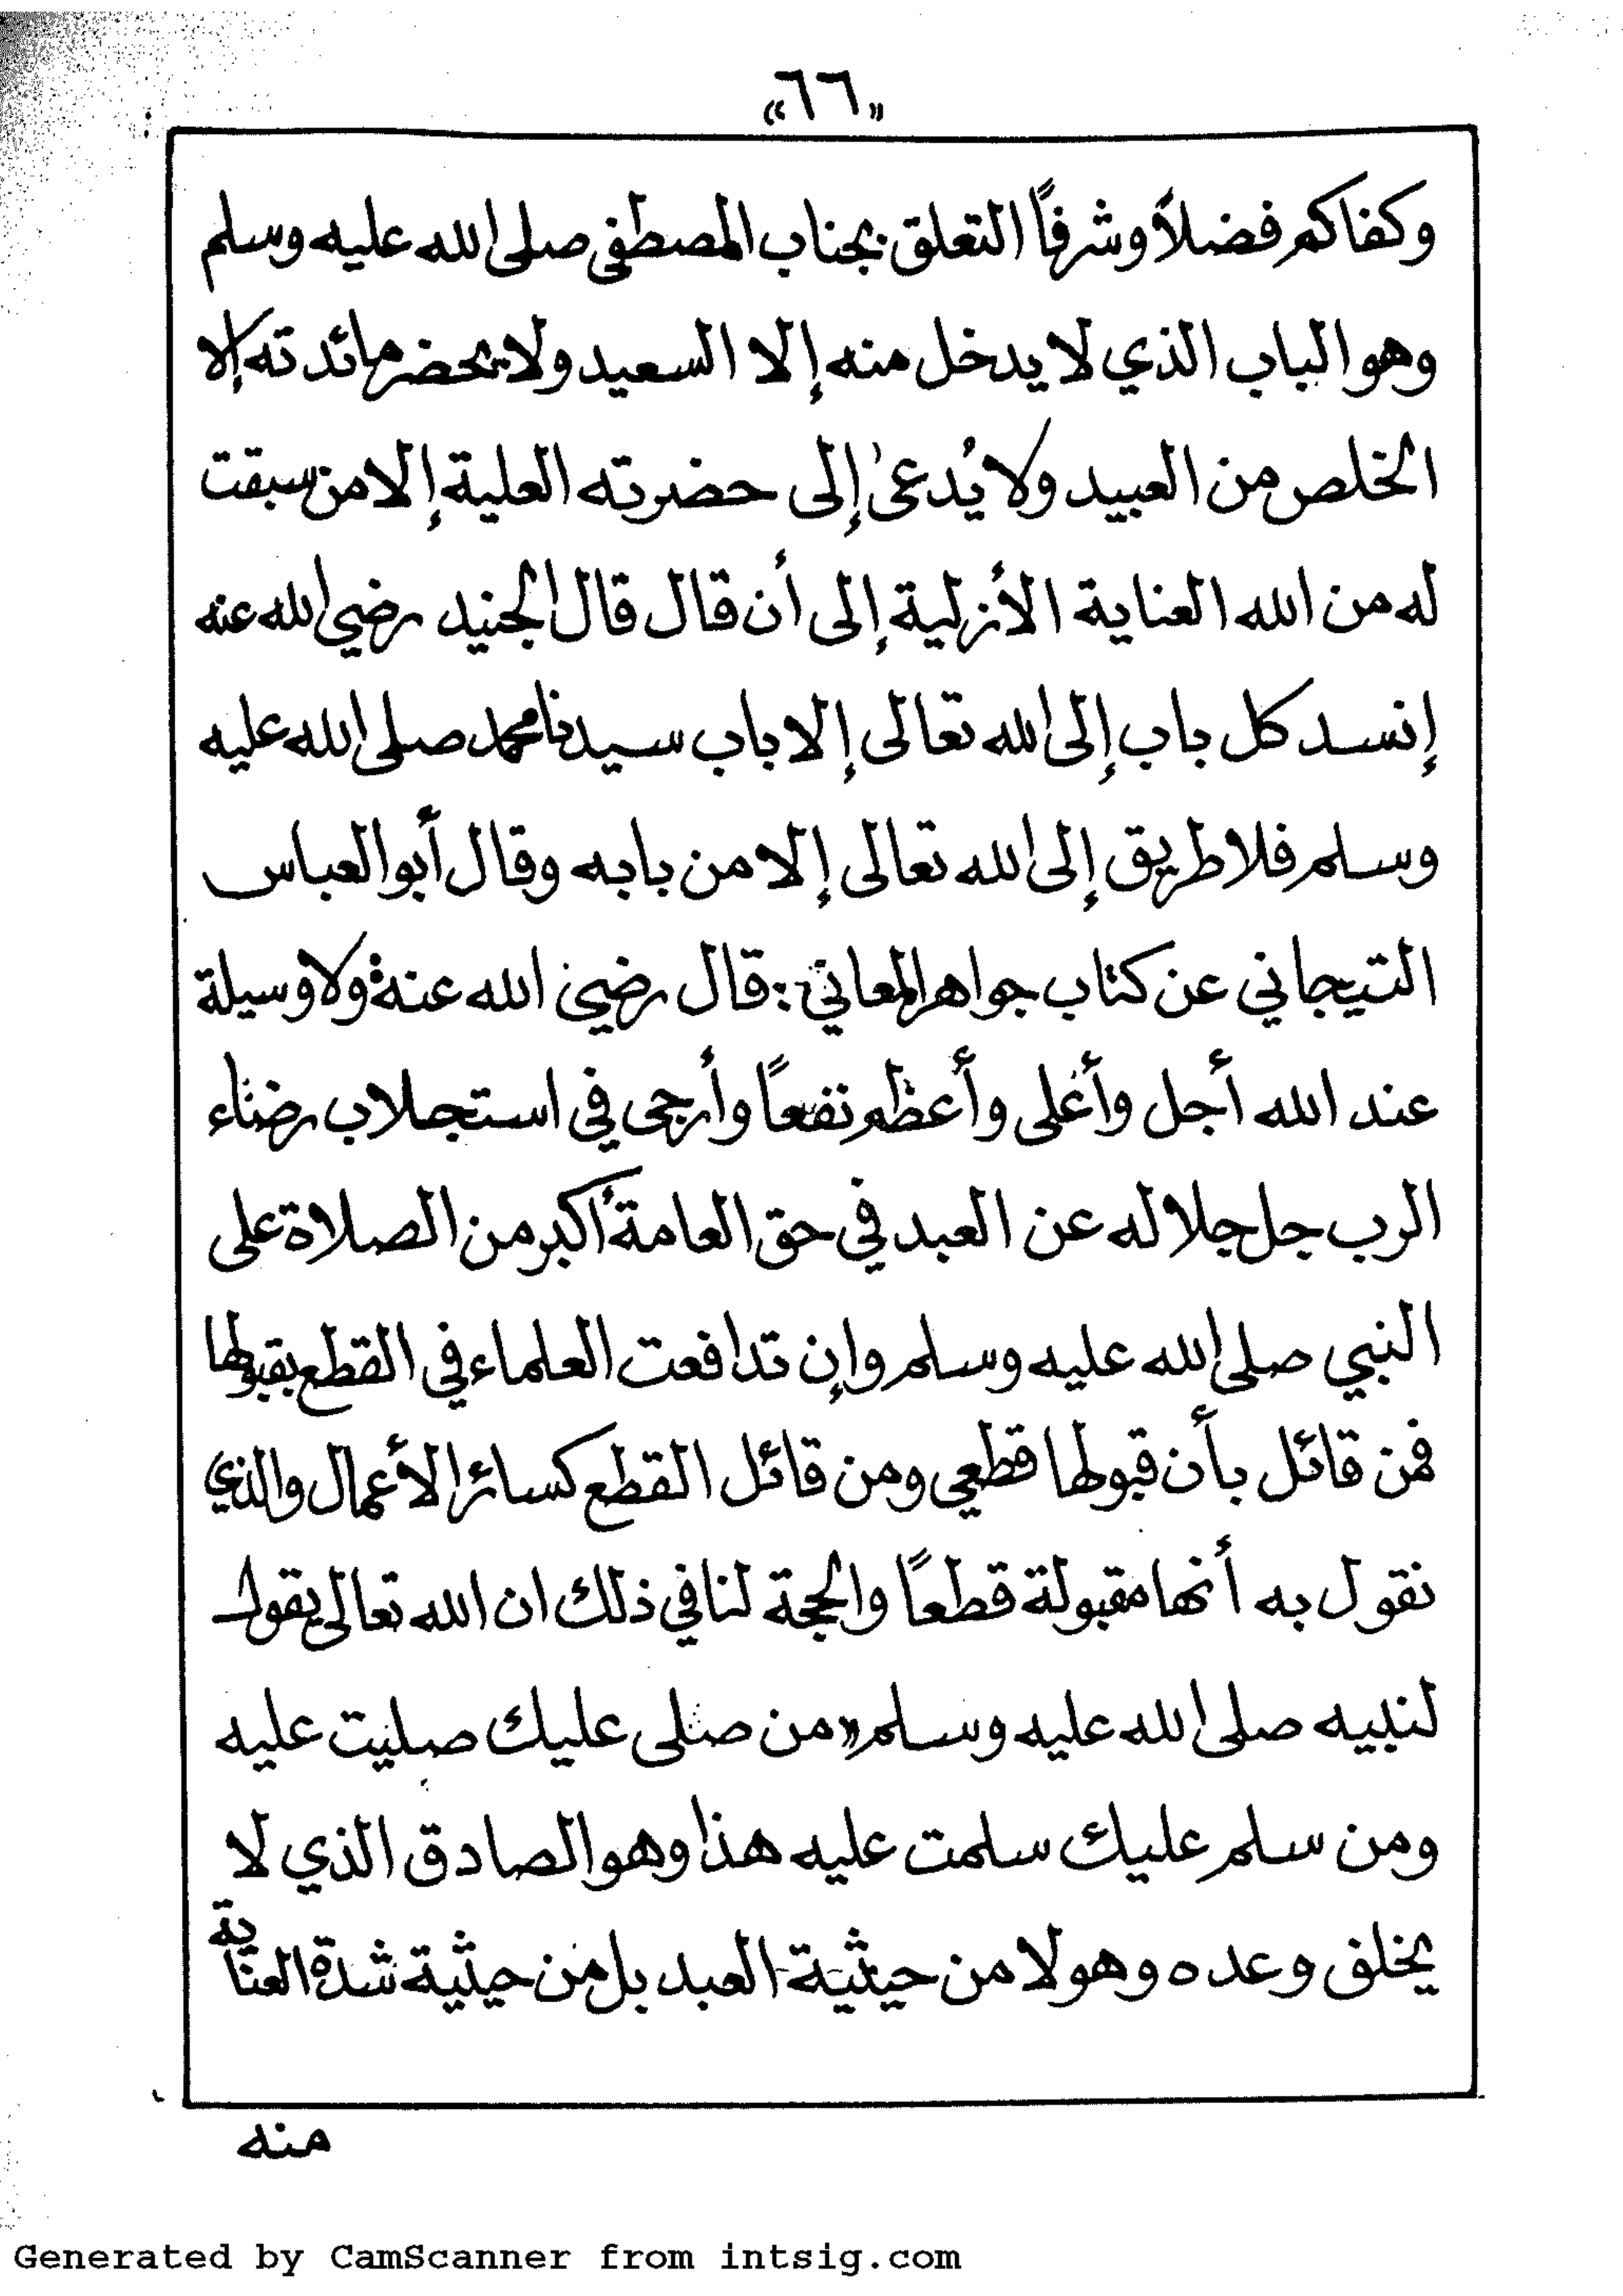 «٦٦»
وكفاكم فضلاً وشرفاً التعلق بجناب المصطفى صلى الله عليه وسلم
وهو الباب الذي لا يدخل منه إلا السعيد ولا يحضر مائدته إلا
الخلص من العبيد ولا يُدعى إلى حضرته العلية إلا من سبقت
له من الله العناية الأزلية إلى أن قال قال الجنيد رضي الله عنه
إنسد كل باب إلى الله تعالى إلا باب سيدنا محمد صلى الله عليه
وسلم فلا طريق إلى الله تعالى إلا من بابه وقال أبو العباس
التيجاني عن كتاب جواهر المعاني : قال رضي الله عنه : ولا وسيلة
عند الله أجل وأغلى وأعظم نفعاً وأرجى في استجلاب رضاء
الرب جل جلاله عن العبد في حق العامة أكبر من الصلاة على
النبي صلى الله عليه وسلم وإن تدافعت العلماء في القطع بقبولها
فمن قائل بأن قبولها قطعي ومن قائل القطع كسائر الأعمال والذي
نقول به أنها مقبولة قطعاً والحجة لنا في ذلك ان الله تعالى يقول
لنبيه صلى الله عليه وسلم » من صلى عليك صليت عليه
ومن سلم عليك سلمت عليه هذا وهو الصادق الذي لا
يخلف وعده وهو لا من حيثية العبد بل من حيثية شدة العناية
منه
Generated by CamScanner from intsig.com